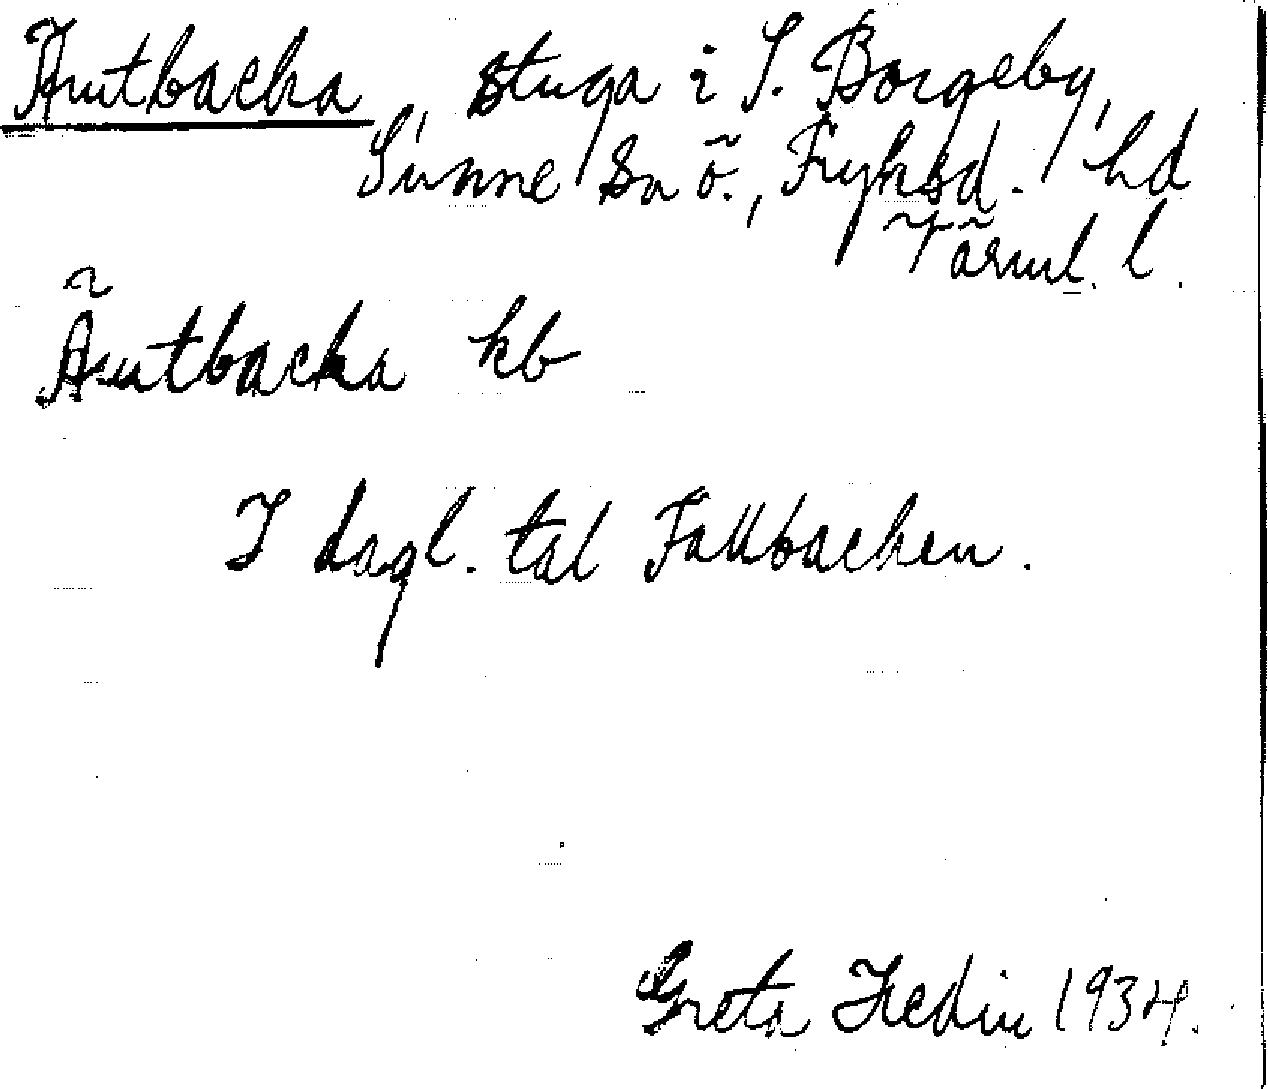 Hutbacka, stuga i S. Borgeby,
Sunne sn ö., Fryksd. hd
Värml. l.
kb
I dagl. tal Fallbacken.
Greta Hedin 1934.